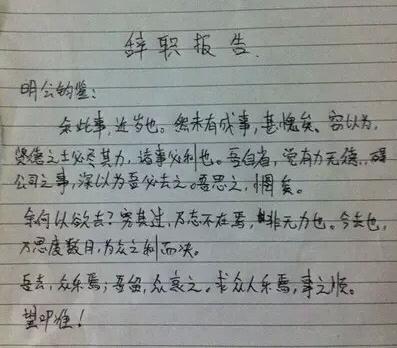 辞职报告
明公钧鉴：
余此事，近岁也。然未有成事，甚愧矣。窃以为，
贤德之士必尽其力，诸事必利也。吾自省，觉有力无德，碍
公司之事，深以为吾必去之。吾思之，惘矣。
余何以欲去？究其过，乃志不在焉，非无力也。今去也，
不思度数日，为众之利而决。
吾去，众乐焉；吾留，众哀之。求众人乐焉，事之顺。
望叩准！